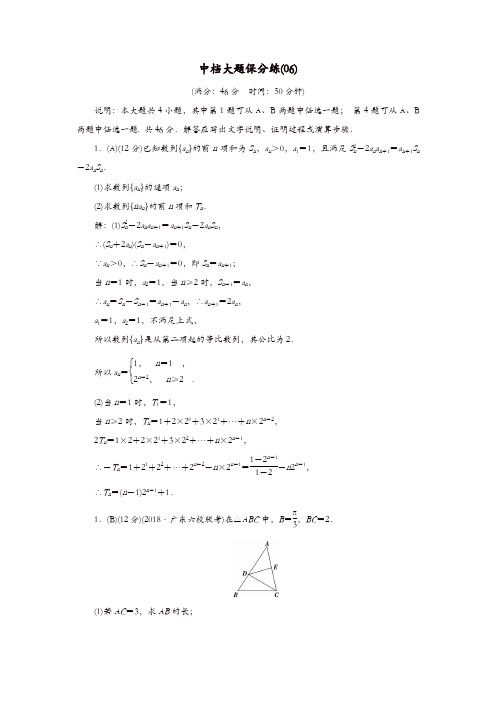 中档大题保分练(06)
(满分：46分　时间：50分钟)
说明：本大题共4小题，其中第1题可从A、B两题中任选一题；　第4题可从A、B
两题中任选一题. 共46分．解答应写出文字说明、证明过程或演算步骤．
1．(A)(12分)已知数列{aₙ}的前n项和为Sₙ，aₙ＞0，a₁＝1，且满足Sₙ²－2aₙaₙ₊₁＝aₙ₊₁Sₙ
－2aₙSₙ.
(1)求数列{aₙ}的通项aₙ；
(2)求数列{naₙ}的前n项和Tₙ.
解：(1)Sₙ²－2aₙaₙ₊₁＝aₙ₊₁Sₙ－2aₙSₙ，
∴(Sₙ＋2aₙ)(Sₙ－aₙ₊₁)＝0，
∵aₙ＞0，∴Sₙ－aₙ₊₁＝0，即Sₙ＝aₙ₊₁；
当n＝1时，a₂＝1，当n≥2时，Sₙ₋₁＝aₙ，
∴aₙ＝Sₙ－Sₙ₋₁＝aₙ₊₁－aₙ，∴aₙ₊₁＝2aₙ，
a₁＝1，a₂＝1，不满足上式，
所以数列{aₙ}是从第二项起的等比数列，其公比为2．
所以aₙ＝{1，　n＝1　，
2ⁿ⁻²，　n≥2　．
(2)当n＝1时，T₁＝1，
当n≥2时，Tₙ＝1＋2×2⁰＋3×2¹＋…＋n×2ⁿ⁻²，
2Tₙ＝1×2＋2×2¹＋3×2²＋…＋n×2ⁿ⁻¹，
∴－Tₙ＝1＋2¹＋2²＋…＋2ⁿ⁻²－n×2ⁿ⁻¹＝(1－2ⁿ⁻¹)/(1－2)－n2ⁿ⁻¹，
∴Tₙ＝(n－1)2ⁿ⁻¹＋1．
1．(B)(12分)(2018·广东六校联考)在△ABC中，B＝π/3，BC＝2．
A
D
E
B
C
(1)若AC＝3，求AB的长；